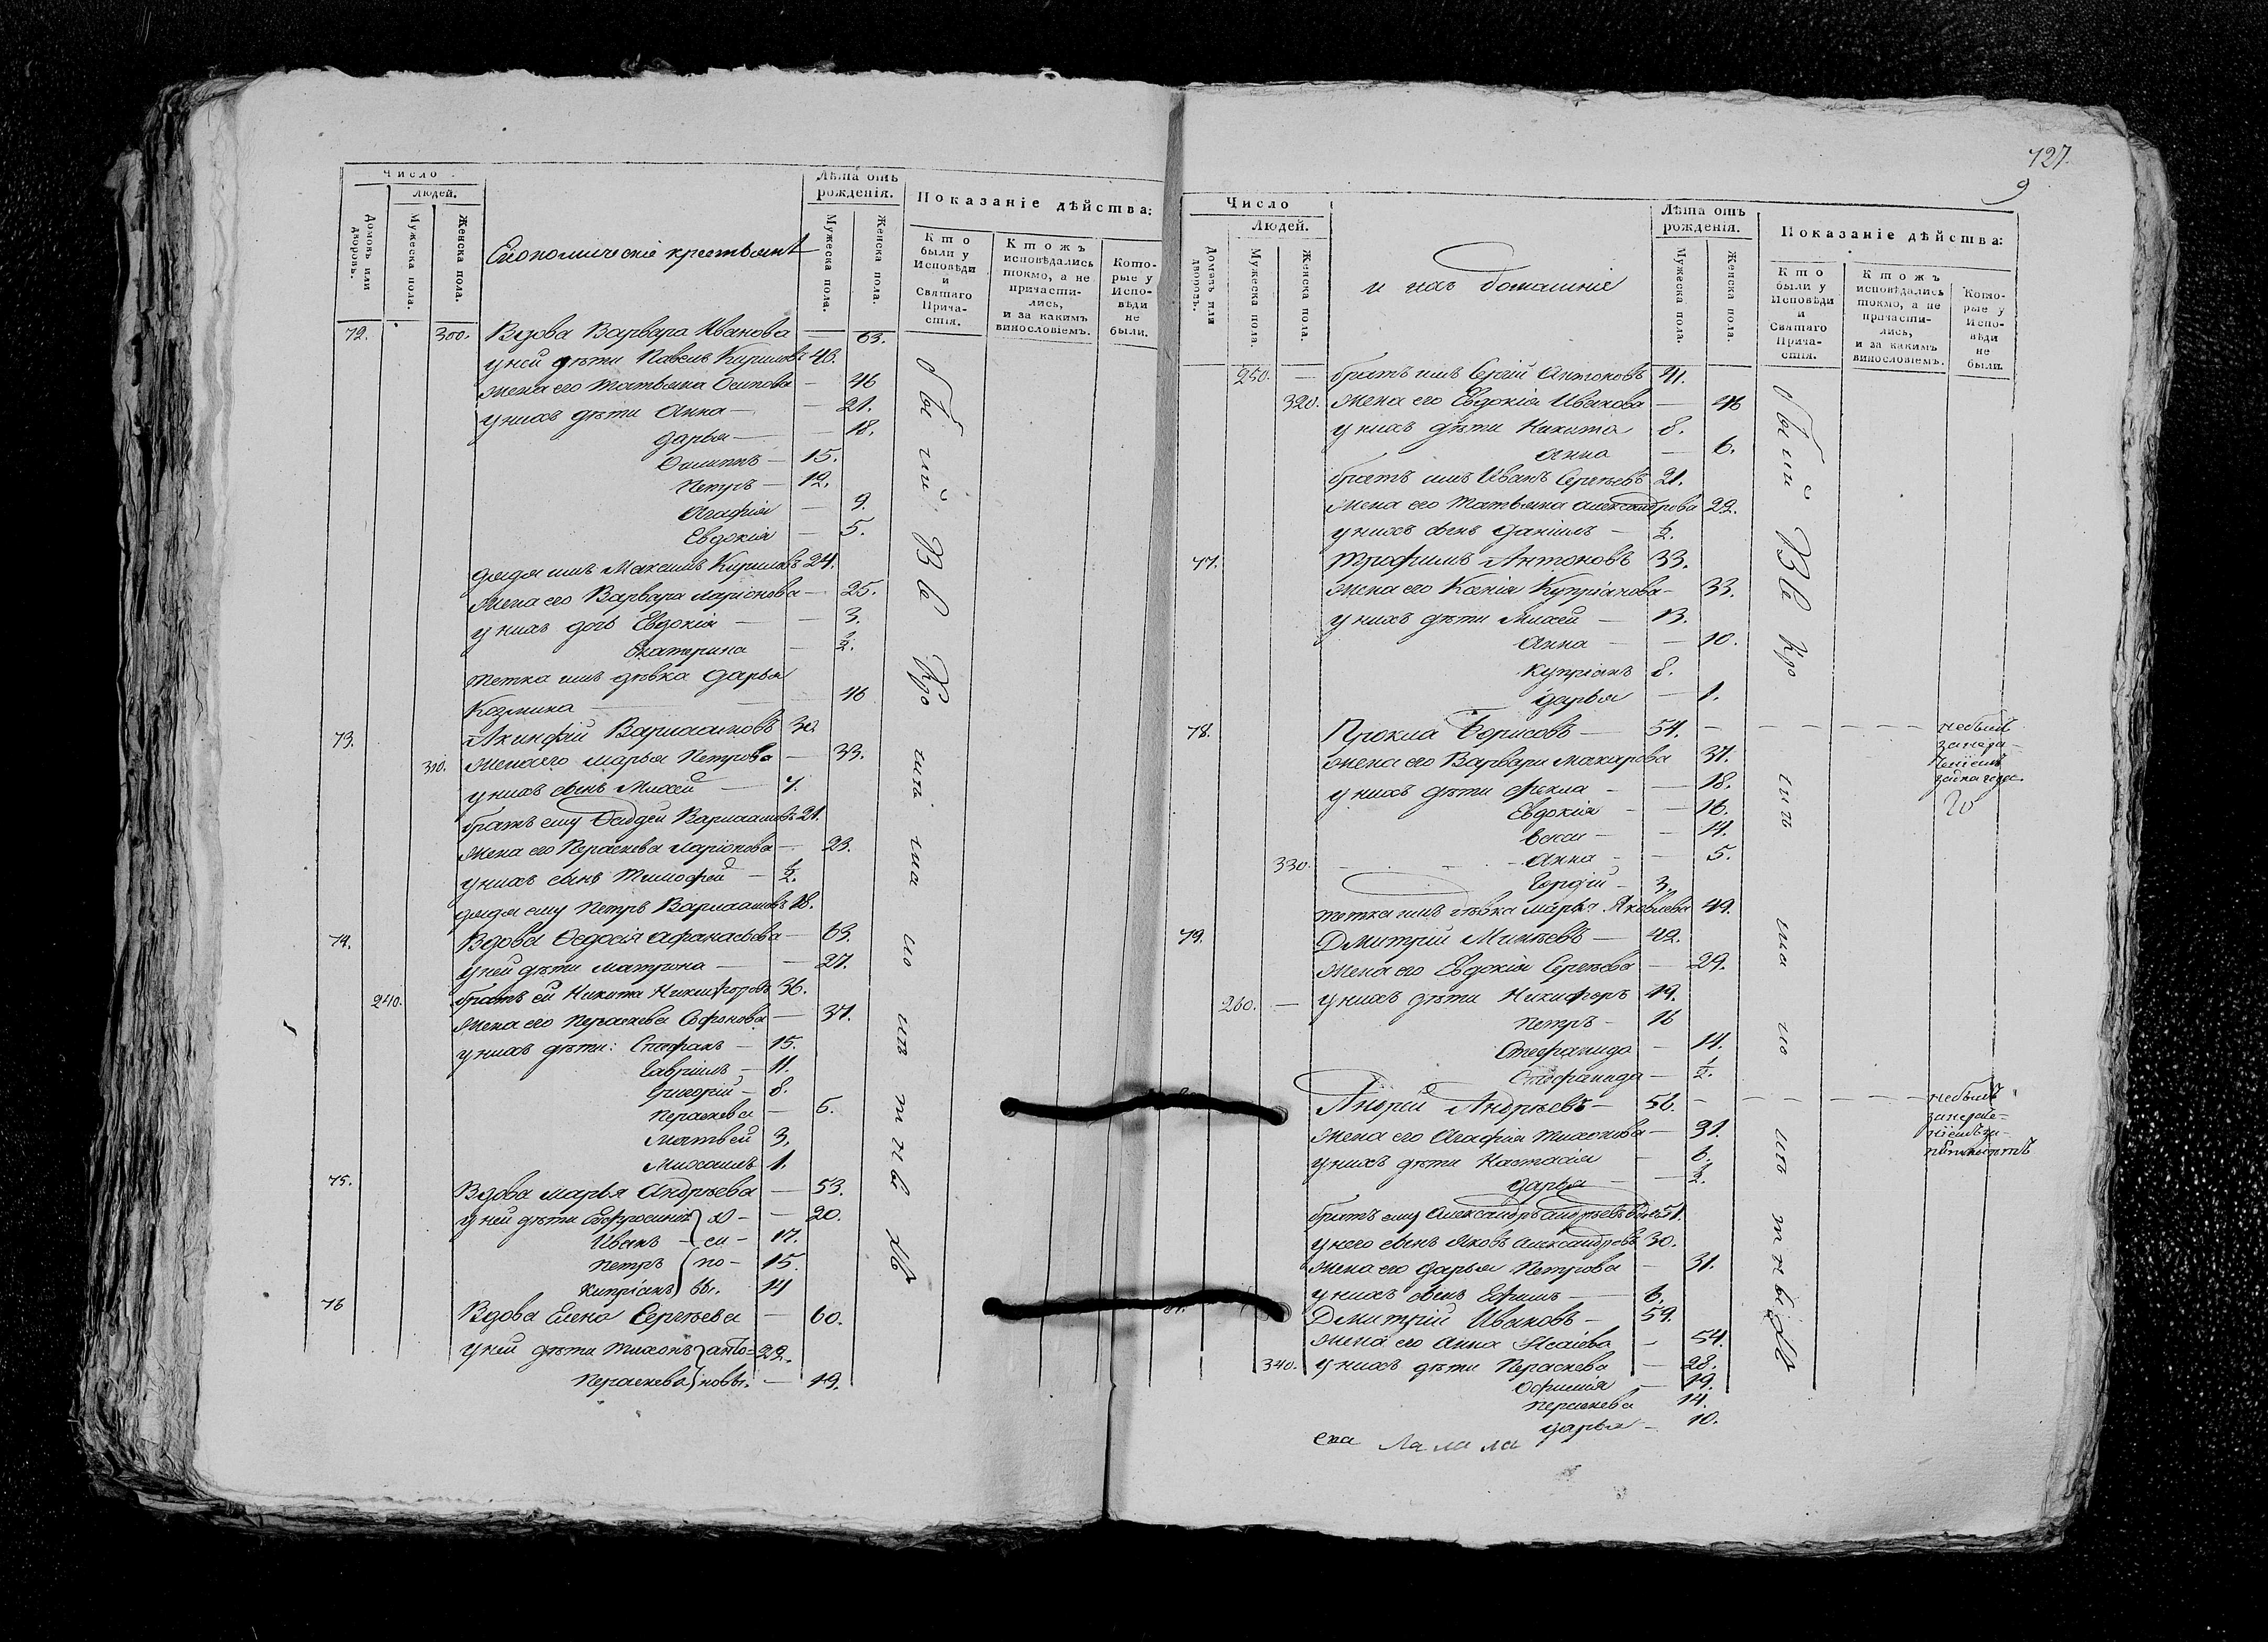 Число
Людей.
Домовъ или дворовъ.
Мужеска пола.
Женска пола.
Економическіе крестьянѣ
Лѣта отъ рожденія.
Мужеска пола.
Женска пола.
Показаніе дѣйства:
Кто были у Исповѣди и Святаго Причастія.
Ктожъ исповѣдались токмо, а не причастились, и за какимъ винословіемъ.
Которые у Исповѣди не были.
72. 300. Вдова Варвара Иванова — 63.
у ней дѣти Павелъ Кириловъ 43.
жена его Татьяна Осипова — 46
у нихъ дѣти Анна — 21.
Дарья — 18.
Филиппъ — 15.
Петръ — 12.
Агафія — 9.
Евдокія — 5.
дядя имъ Максимъ Кириловъ 24.
жена его Варвара Ларіонова — 25.
у нихъ дочь Евдокія — 3.
Екатерина — ½.
тетка имъ дѣвка Дарья
Козмина — 46
73. Акинфій Варлаамовъ 30
310. жена его Марья Петрова — 33.
у нихъ сынъ Михей — 7.
братъ ему Фаддей Варлаамовъ 21.
жена его Параскева Ларіонова — 23.
у нихъ сынъ Тимофей — ½.
дядя ему Петръ Варлаамовъ 18.
74. Вдова Ѳедосія Афанасьева — 63.
у ней дѣти Матрона — 27.
240. братъ ей Никита Никифоровъ 36.
жена его Параскева Софонова — 37.
у нихъ дѣти: Стефанъ — 15.
Гавріилъ — 11.
Григорій — 8.
Параскева — 5.
Матвей 3.
Михаилъ 1.
75. Вдова Марья Андрѣева — 53.
у ней дѣти Евфросинія — 20.
Иванъ — 17.
Петръ — 15.
Кипріанъ 11
76 Вдова Елена Сергѣева — 60.
у ней дѣти Тихонъ анто= 22.
Параскева новы. — 19.
127.
9
Число
Людей.
Домовъ или дворовъ.
Мужеска пола.
Женска пола.
и ихъ домашніе
Лѣта отъ рожденія.
Мужеска пола.
Женска пола.
Показаніе дѣйства:
Кто были у Исповѣди и Святаго Причастія.
Ктожъ исповѣдались токмо, а не причастились, и за какимъ винословіемъ.
Которые у Исповѣди не были.
250. — братъ имъ Сергій Антоновъ 41.
320. жена его Евдокія Иванова — 46
у нихъ дѣти Никита 8.
Анна — 6.
братъ имъ Иванъ Сергѣевъ 21.
жена его Татьяна Александрова 22.
у нихъ сынъ Даніилъ — ½.
77. Трофимъ Антоновъ 33.
жена его Ксенія Купріанова — 33.
у нихъ дѣти Михей — 13.
Анна — 10.
Купріанъ 8.
Дарья — 1.
78. Прокла Борисовъ — 54. — небылъ
жена его Варвара Макарова 37.
у нихъ дѣти Фекла — 18.
Евдокія — 16.
14.
330. Анна — 5.
Сергій — 3.
тетка имъ дѣвка Марья Яковлева 49.
79. Дмитрій Михѣевъ — 42.
жена его Евдокія Сергѣева — 29.
260. — у нихъ дѣти Никифоръ 19.
Петръ — 16
Стефанида — 11.
Стефанида — ½.
Андрей Андрѣевъ — 56. — небылъ
жена его Агафія Тихонова — 31.
у нихъ дѣти Настасія — 6.
Дарья — ½.
братъ ему Александръ Андрѣевъ 51.
у него сынъ Яковъ Александровъ 30.
жена его Дарья Петрова — 31.
у нихъ сынъ Ефимъ — 6.
81. Дмитрій Ивановъ — 59.
жена его Анна Исаіева — 54.
340. у нихъ дѣти Параскева — 28.
Офимія — 19.
Параскева 14.
Дарья — 10.